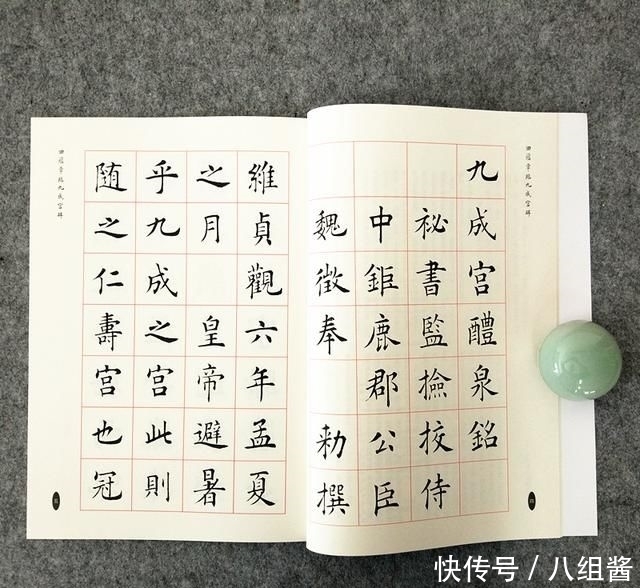 九成宮醴泉銘
祕書監撿挍侍
中鉅鹿郡公臣
魏徵奉勅撰
維貞觀六年孟夏
之月皇帝避暑
乎九成之宮此則
随之仁壽宮也冠
章臨九成宮碑
章臨九成宮碑
快传号／八组酱